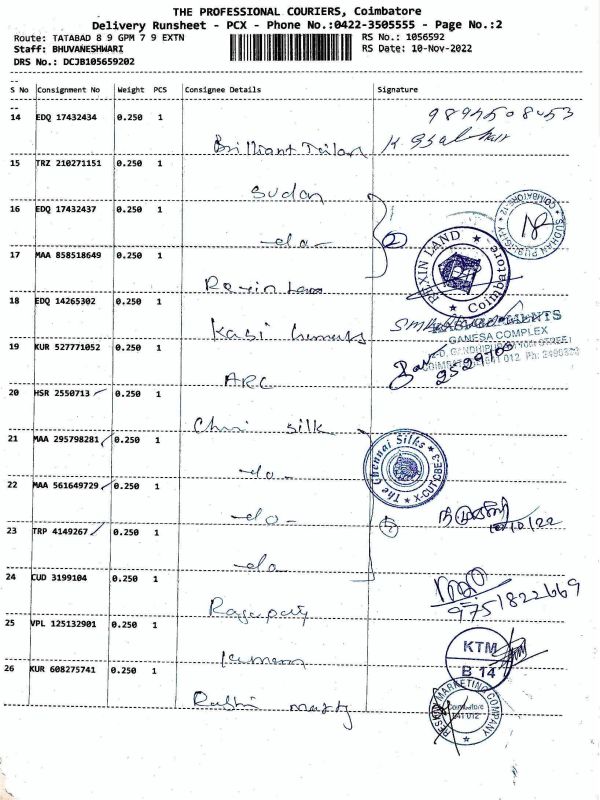 THE PROFESSIONAL COURIERS, Coimbatore
Delivery Runsheet - PCX - Phone No.:0422-3505555 - Page No.:2
Route: TATABAD 8 9 GPM 7 9 EXTN
RS No.: 1056592
Staff: BHUVANESHWARI
RS Date: 10-Nov-2022
DRS No.: DCJB105659202
S No Consignment No Weight PCS Consignee Details Signature
14 EDQ 17432434 0.250 1
Brilliant Tailor
15 TRZ 210271151 0.250 1
Sudan
16 EDQ 17432437 0.250 1
-do-
SUDHAN PUBLICITY COIMBATORE-12
17 MAA 858518649 0.250 1
Rexin Land
REXIN LAND Coimbatore
18 EDQ 14265302 0.250 1
Kasi
GANESA COMPLEX
19 KUR 527771052 0.250 1
ARC
20 HSR 2550713 0.250 1
Chennai silk
21 MAA 295798281 0.250 1
-do-
The Chennai Silks X-CUT CBE-3
22 MAA 561649729 0.250 1
-do-
23 TRP 4149267 0.250 1
-do
24 CUD 3199104 0.250 1
9751822669
25 VPL 125132901 0.250 1
KTM
B 14
26 KUR 608275741 0.250 1
MARKETING COMPANY
Coimbatore
641 012